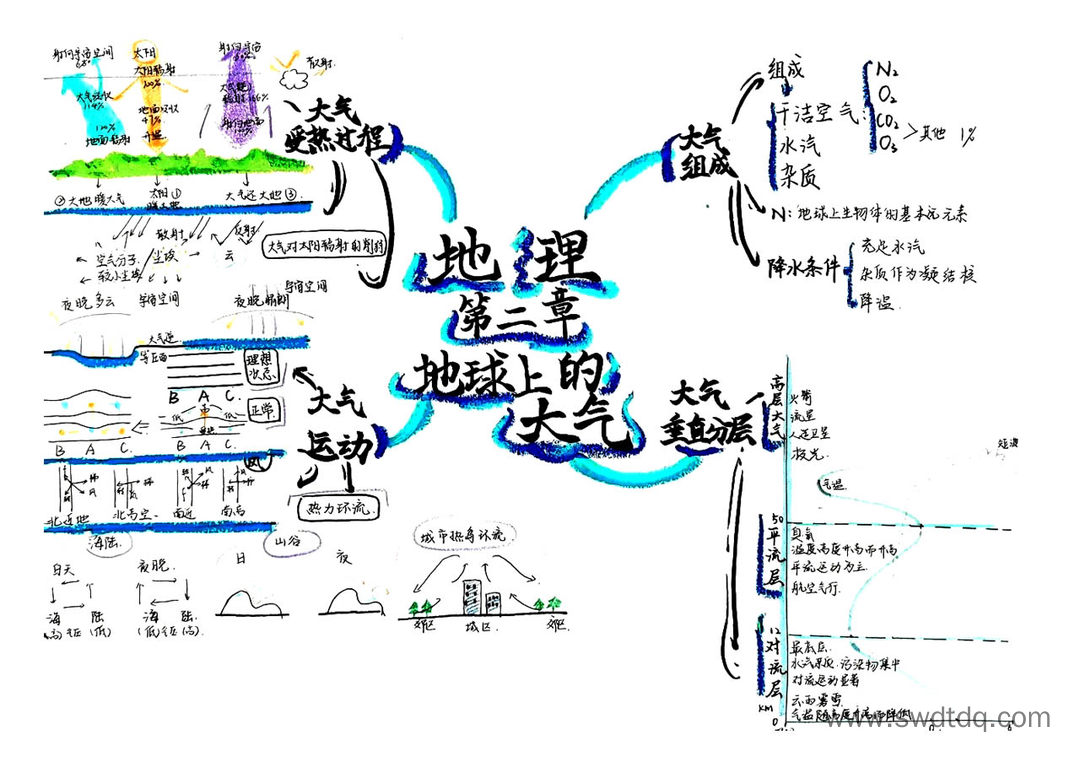 地理
第二章
地球上的
大气
大气
组成
组成
干洁空气:
水汽
杂质
N₂
O₂
CO₂
O₃
其他 1%
N:地球上生物体的基本元素
降水条件
充足水汽
杂质作为凝结核
降温
大气
垂直分层
高层大气
火箭
流星
人造卫星
极光
短波
气温
50
平流层
臭氧
温度高度升高而升高
平流运动为主
航空飞行
12
对流层
最底层
水气杂质、污染物集中
对流运动显著
云雨雾雪
气温随高度升高而降低
km
0
大气
受热过程
射向宇宙空间
太阳
太阳辐射
100%
大气吸收
114%
地面吸收
47%
升温
地面辐射
射向地面
散射
②大地暖大气
太阳①
大气还大地③
散射
反射
空气分子
尘埃
云
较小尘埃
大气对太阳辐射的削弱
夜晚多云
宇宙空间
夜晚晴朗
宇宙空间
大气逆
等压面
理想
状态
B A C
正常
低
低
B A C
B A C
风
北近地
北高空
南近
南高
大气
运动
热力环流
海陆
山谷
城市热岛环流
白天
夜晚
日
夜
海 陆
海 陆
(低)
(低)
(高)
郊区
城区
郊区
www.swdtdq.com